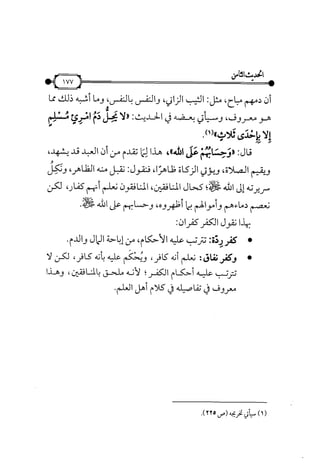 الحديث الثامن
١٧٧
أن دمهم مباح، مثل: الثيب الزاني، والنفس بالنفس، وما أشبه ذلك مما
هو معروف، وسيأتي بعضه في الحديث: «لَا يَحِلُّ دَمُ امْرِئٍ مُسْلِمٍ
إِلَّا بِإِحْدَى ثَلَاثٍ»(١).
قال: «وَحِسَابُهُمْ عَلَى اللهِ»، هذا لِمَا تقدم من أن العبد قد يشهد،
ويقيم الصلاة، ويؤتي الزكاة ظاهرًا، فنقول: نقبل منه الظاهر، ونَكِلُ
سريرته إلى الله ﷻ؛ كحال المنافقين، المنافقون نعلم أنهم كفار، لكن
نعصم دماءهم وأموالهم بما أظهروه، وحسابهم على الله ﷻ.
بهذا نقول الكفر كفران:
• كفر رِدَّة: تترتب عليه الأحكام، من إباحة المال والدم.
• وكفر نفاق: نعلم أنه كافر، ويُحْكَم عليه بأنه كافر، لكن لا
تترتب عليه أحكام الكفر؛ لأنه ملحق بالمنافقين، وهذا
معروف في تفاصيله في كلام أهل العلم.
(١) سيأتي تخريجه (ص ٢٢٥).